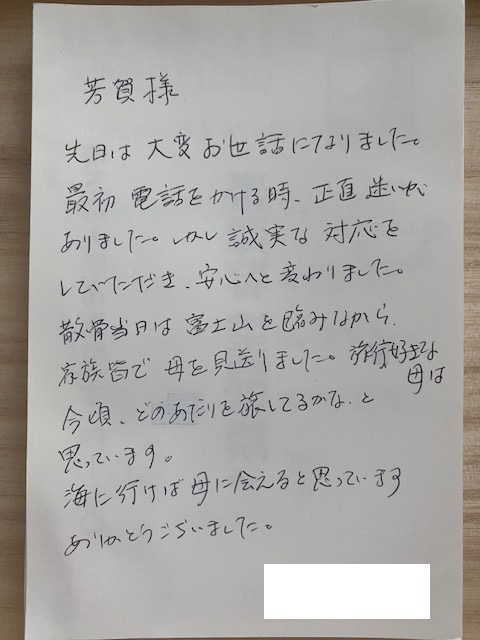 芳賀様
先日は大変お世話になりました。
最初電話をかける時、正直迷いが
ありました。しかし誠実な対応を
していただき、安心へと変わりました。
散骨当日は富士山を臨みながら、
家族皆で母を見送りました。旅行好きな
母は
今頃、どのあたりを旅してるかな、と
思っています。
海に行けば母に会えると思っています
ありがとうございました。